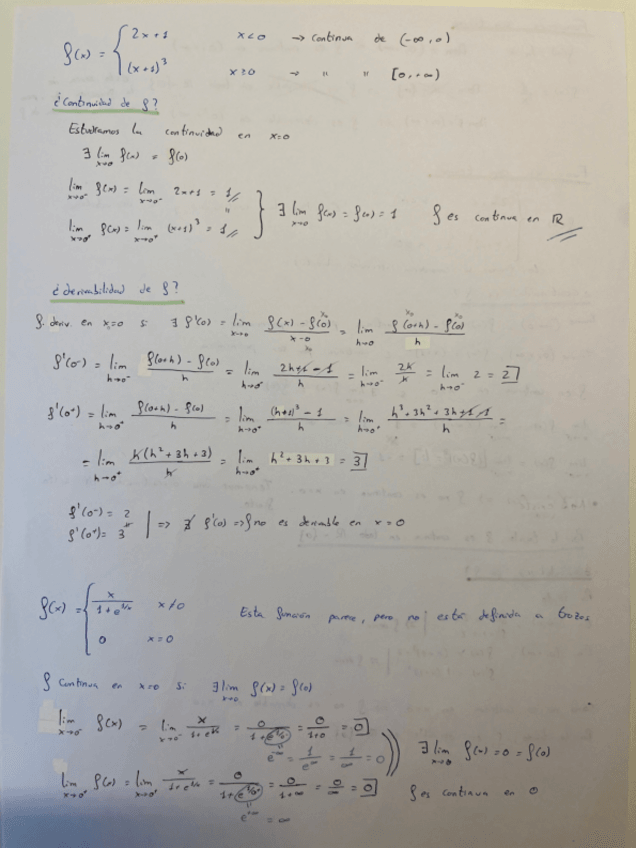 f(x) = { 2x+1 x<0 → continua de (-∞, 0)
(x+1)³ x≥0 → " " [0, +∞)
¿Continuidad de f?
Estudiamos la continuidad en x=0
∃ lim x→0 f(x) = f(0)
lim x→0⁻ f(x) = lim x→0⁻ 2x+1 = 1
lim x→0⁺ f(x) = lim x→0⁺ (x+1)³ = 1 } ∃ lim x→0 f(x) = f(0) = 1 f es continua en ℝ
¿derivabilidad de f?
f. deriv. en x=0 si ∃ f'(0) = lim x→0 (f(x) - f(0))/(x-0) = lim h→0 (f(0+h) - f(0))/h
f'(0⁻) = lim h→0⁻ (f(0+h) - f(0))/h = lim h→0⁻ (2h+1-1)/h = lim h→0⁻ 2h/h = lim h→0⁻ 2 = 2
f'(0⁺) = lim h→0⁺ (f(0+h) - f(0))/h = lim h→0⁺ ((h+1)³ - 1)/h = lim h→0⁺ (h³+3h²+3h+1-1)/h =
= lim h→0⁺ h(h²+3h+3)/h = lim h→0⁺ h²+3h+3 = 3
f'(0⁻) = 2
f'(0⁺) = 3 | => ∄ f'(0) => f no es derivable en x=0
f(x) = { x/(1+e^(1/x)) x≠0 Esta función parece, pero no está definida a trozos
0 x=0
f continua en x=0 si ∃ lim x→0 f(x) = f(0)
lim x→0⁻ f(x) = lim x→0⁻ x/(1+e^(1/x)) = 0/(1+e^(1/0⁻)) = 0/(1+0) = 0/1 = 0
e^(-∞) = 1/e^∞ = 1/∞ = 0
∃ lim x→0 f(x) = 0 = f(0)
lim x→0⁺ f(x) = lim x→0⁺ x/(1+e^(1/x)) = 0/(1+e^(1/0⁺)) = 0/(1+∞) = 0/∞ = 0
f es continua en 0
e^(+∞) = ∞